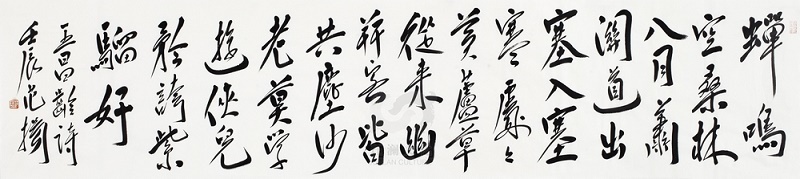 蟬鳴
空桑林
八月蕭
関道出
塞入塞
寒處々
黃蘆草
從來幽
并客皆
共塵沙
老莫学
遊俠兒
矜誇紫
騮好
王昌齡詩
壬辰范